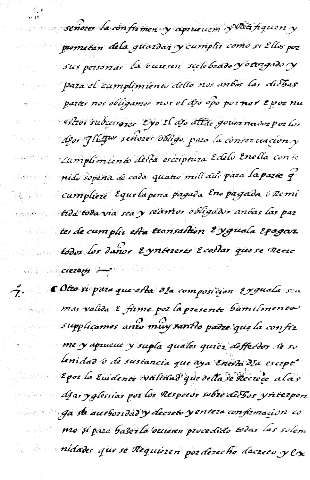 señores la confirmen y aprueven y Ratifiquen y
prometan de la guardar y cumplir como si Ellos por
sus personas la ovieren celebrado y otorgado y
para el cumplimiento dello nos anbas las dichas
partes nos obligamos nos el dho obpo por nos E por nu
estros subcesores E yo el dho governador por los
dhos señores obligo para la conservacion y
cumplimiento desta escriptura E delo Enella conte
nido sopena de cada quatro mill para la parte q
cumpliere E que la pena pagada E no pagada o Remi
tida toda via sea y seamos obligados anbas las par
tes de cumplir esta transaction E yguala E pagar
todos los daños E yntereses E costas que se Recre
cieren
Otro si para que esta dha composicion E yguala sea
mas valida E firme por la presente humilmente
supplicamos a nro muy santo padre que la confir
me y aprueve y supla qualesquier deffectos de so
lenidad o de sustancia que aya Enesta dha escriptª
E por la Evidente utilidad que della se Recrece a las
dhas yglesias por los Respetos sobre dichos ynterpon
ga su authoridad y decreto y entera confirmacion co
mo si para hazerla ovieren procedido todas las solem
nidades que se Requieren por derecho decreto y Ex